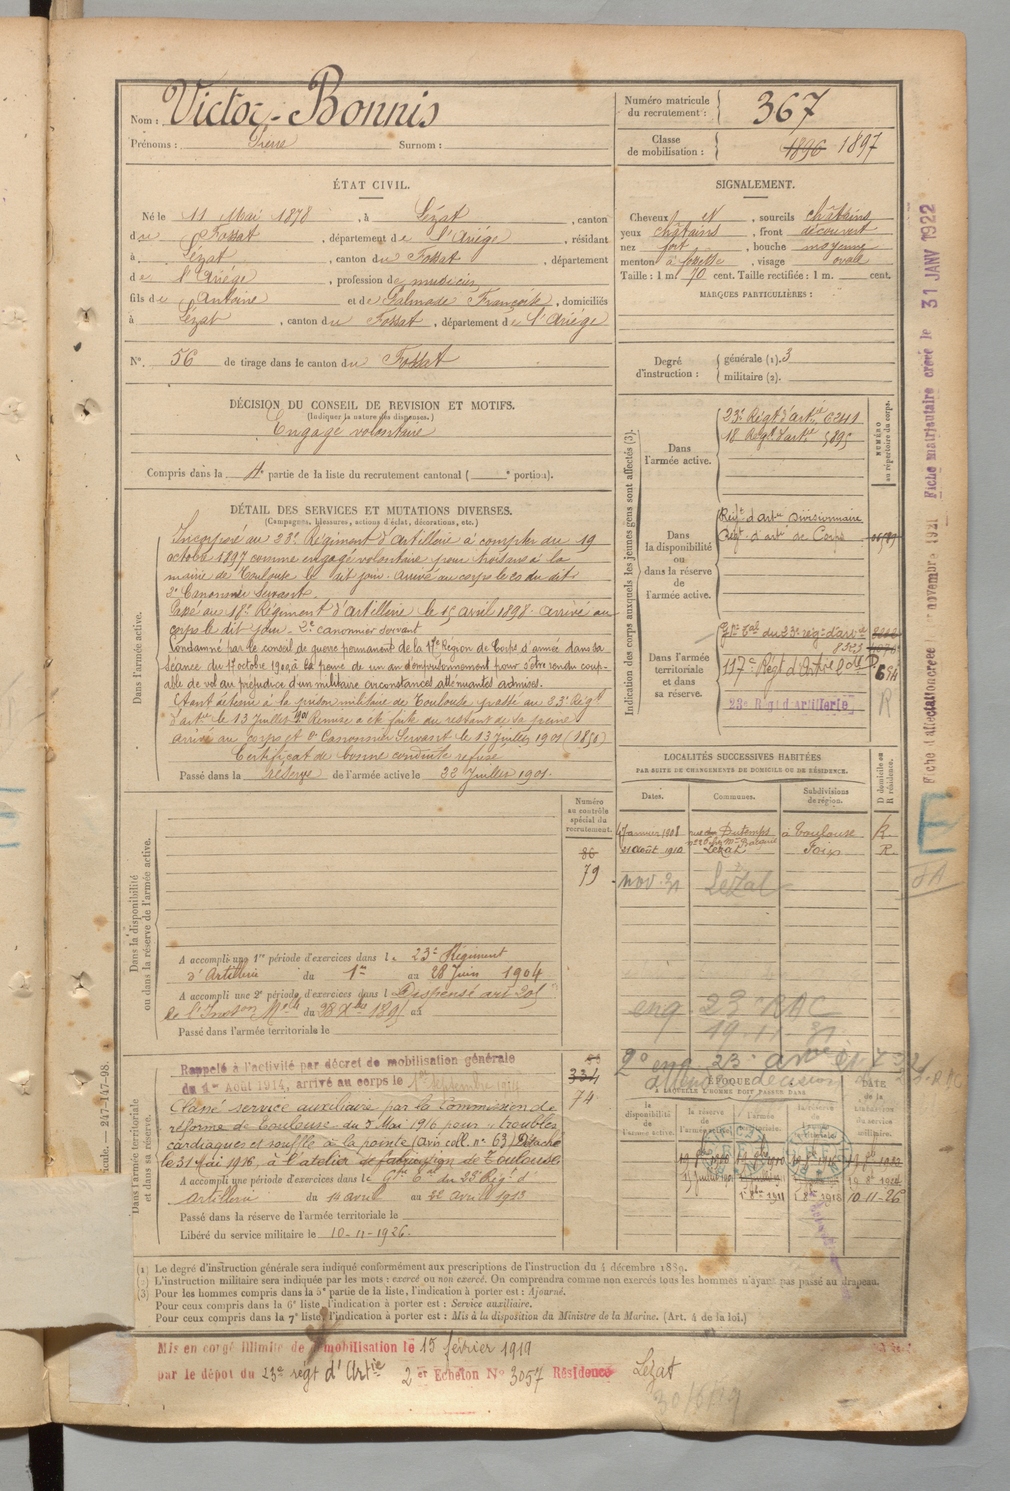 Nom : Victor-Bonnis
Prénoms : Pierre Surnom :
Numéro matricule du recrutement : 367
Classe de mobilisation : 1896 1897
ÉTAT CIVIL.
Né le 11 Mai 1878, à Lézat, canton
du Fossat, département de l'Ariége, résidant
à Lézat, canton du Fossat, département
de l'Ariége, profession de musicien
fils de Antoine et de Galinade Françoise, domiciliés
à Lézat, canton du Fossat, département de l'Ariége
N° 56 de tirage dans le canton du Fossat
SIGNALEMENT.
Cheveux N, sourcils châtains
yeux châtains, front découvert
nez fort, bouche moyenne
menton à fossette, visage ovale
Taille : 1 m. 70 cent. Taille rectifiée : 1 m. cent.
MARQUES PARTICULIÈRES :
Degré d'instruction : générale (1). 3
militaire (2).
DÉCISION DU CONSEIL DE REVISION ET MOTIFS.
(Indiquer la nature des dispenses.)
Engagé volontaire
Compris dans la 4e partie de la liste du recrutement cantonal ( e portion).
DÉTAIL DES SERVICES ET MUTATIONS DIVERSES.
(Campagnes, blessures, actions d'éclat, décorations, etc.)
Dans l'armée active.
Incorporé au 23e Régiment d'Artillerie à compter du 19
octobre 1897 comme engagé volontaire pour trois ans à la
mairie de Toulouse le dit jour. Arrivé au corps le 20 du dit
2e Canonnier Servant.
Passé au 18e Régiment d'Artillerie le 15 avril 1898. arrivé au
corps le dit jour. 2e canonnier servant
Condamné par le conseil de guerre permanent de la 17e Région de Corps d'armée dans sa
séance du 17 octobre 1900 à la peine de un an d'emprisonnement pour s'être rendu coup-
able de vol au préjudice d'un militaire circonstances atténuantes admises.
Etant détenu à la prison militaire de Toulouse passé au 23e Régt
d'artie le 13 Juillet 1901 Remise a été faite du restant de sa peine
arrivé au corps et 2e Canonnier Servant le 13 Juillet 1901 (2850)
Certificat de bonne conduite refusé
Passé dans la réserve de l'armée active le 22 Juillet 1901.
Indication des corps auxquels les jeunes gens sont affectés (3).
NUMÉRO au répertoire du corps.
Dans l'armée active.
23e Régt d'artie 6241
18 Régt d'artie 5895
Dans la disponibilité ou dans la réserve de l'armée active.
Régt d'artie Divisionnaire
Régt d'artie de Corps
Dans l'armée territoriale et dans sa réserve.
Gpe Tal du 23e rég. d'artie
117e Régt d'Artie
23e Régt d'Artillerie
R
LOCALITÉS SUCCESSIVES HABITÉES
PAR SUITE DE CHANGEMENTS DE DOMICILE OU DE RÉSIDENCE.
Dates. Communes. Subdivisions de région. D domicile ou R résidence.
4 Janvier 1908 rue du Printemps à Toulouse R
21 août 1910 Lézat Foix R
nov. 21 Lézat
eng. 23e RAC
19-11-31
2e eng. 23e
Dans la disponibilité ou dans la réserve de l'armée active.
Numéro au contrôle spécial du recrutement.
86
79
A accompli une 1re période d'exercices dans le 23e Régiment
d'Artillerie du 1er au 28 Juin 1904
A accompli une 2e période d'exercices dans le Dispensé art 205
de l'Inston Melle du 28 Xbre 1895 au
Passé dans l'armée territoriale le
Dans l'armée territoriale et dans sa réserve.
Rappelé à l'activité par décret de mobilisation générale
du 1er Août 1914, arrivé au corps le 1er Septembre 1914
334
74
Classé service auxiliaire par la Commission de
réforme de Toulouse du 7 Mai 1916 pour : troubles
cardiaques et souffle à la pointe (avis coll. n° 63) Détaché
le 31 Mai 1916, à l'atelier de fabrication de Toulouse
A accompli une période d'exercices dans le Gpe Tal du 23e Régt d'
Artillerie du 14 avril au 22 avril 1913
Passé dans la réserve de l'armée territoriale le
Libéré du service militaire le 10-11-1926.
ÉPOQUE
A LAQUELLE L'HOMME DOIT PASSER DANS
la disponibilité de l'armée active. la réserve de l'armée active. l'armée territoriale. la réserve de
DATE de la libération du service militaire.
10-11-26
(1) Le degré d'instruction générale sera indiqué conformément aux prescriptions de l'instruction du 4 décembre 1889.
(2) L'instruction militaire sera indiquée par les mots : exercé ou non exercé. On comprendra comme non exercés tous les hommes n'ayant pas passé au drapeau.
(3) Pour les hommes compris dans la 5e partie de la liste, l'indication à porter est : Ajourné.
Pour ceux compris dans la 6e liste, l'indication à porter est : Service auxiliaire.
Pour ceux compris dans la 7e liste, l'indication à porter est : Mis à la disposition du Ministre de la Marine. (Art. 4 de la loi.)
Mis en congé illimité de démobilisation le 15 février 1919
par le dépot du 23e régt d'Artie 2er Echelon N° 3057 Résidence Lézat
30/6/19
Fiche d'affectation créée le novembre 1921 Fiche matriculaire créée le 31 JANV 1922
cule. — 247-147-98.